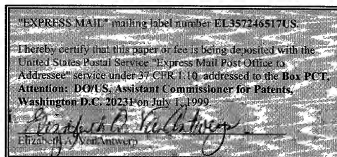 "EXPRESS MAIL" mailing label number EL357246517US.
I hereby certify that this paper or fee is being deposited with the
United States Postal Service "Express Mail Post Office to
Addressee" service under 37 CFR 1.10 addressed to the Box PCT,
Attention: DO/US, Assistant Commissioner for Patents,
Washington D.C. 20231 on July 1, 1999.
Elizabeth A. VanAntwerp
Elizabeth A. VanAntwerp